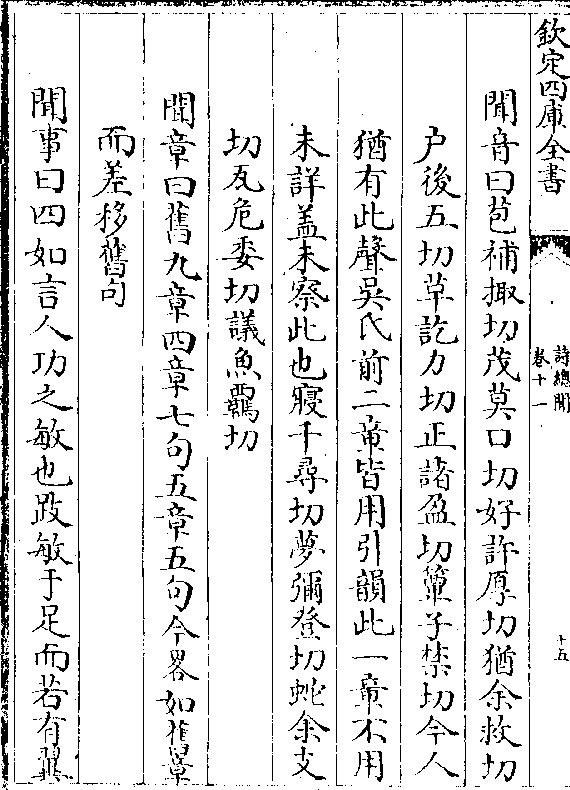 欽定四庫全書
詩總聞
卷十一
十五
聞音曰苞補掫切茂莫口切好許厚切猶余救切
户後五切草訖力切正諸盈切簟子禁切今人
猶有此聲吳氏前二章皆用引韻此一章不用
未詳盖未察此也寢千尋切夢彌登切蛇余支
切瓦危委切議魚羈切
聞章曰舊九章四章七句五章五句今畧如舊章
而差移舊句
聞事曰四如言人功之敏也跂敏于足而若有翼